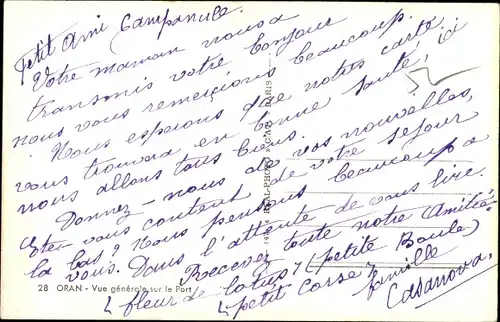 Petit Ami Campanule.
Votre maman nous a
transmis votre bonjour
nous vous remercions beaucoup.
Nous esperons que notre carte
vous trouvera en bonne santé, ici
nous allons tous bien.
Donnez-nous de vos nouvelles,
Etes vous content de votre séjour
la bas? Nous pensons beaucoup a
vous. Dans l'attente de vous lire.
Recevez toute notre Amitié
(fleur de lotus) (petite Boule)
(petit corse) famille
Casanova.
28 ORAN - Vue générale sur le Port
PARIS